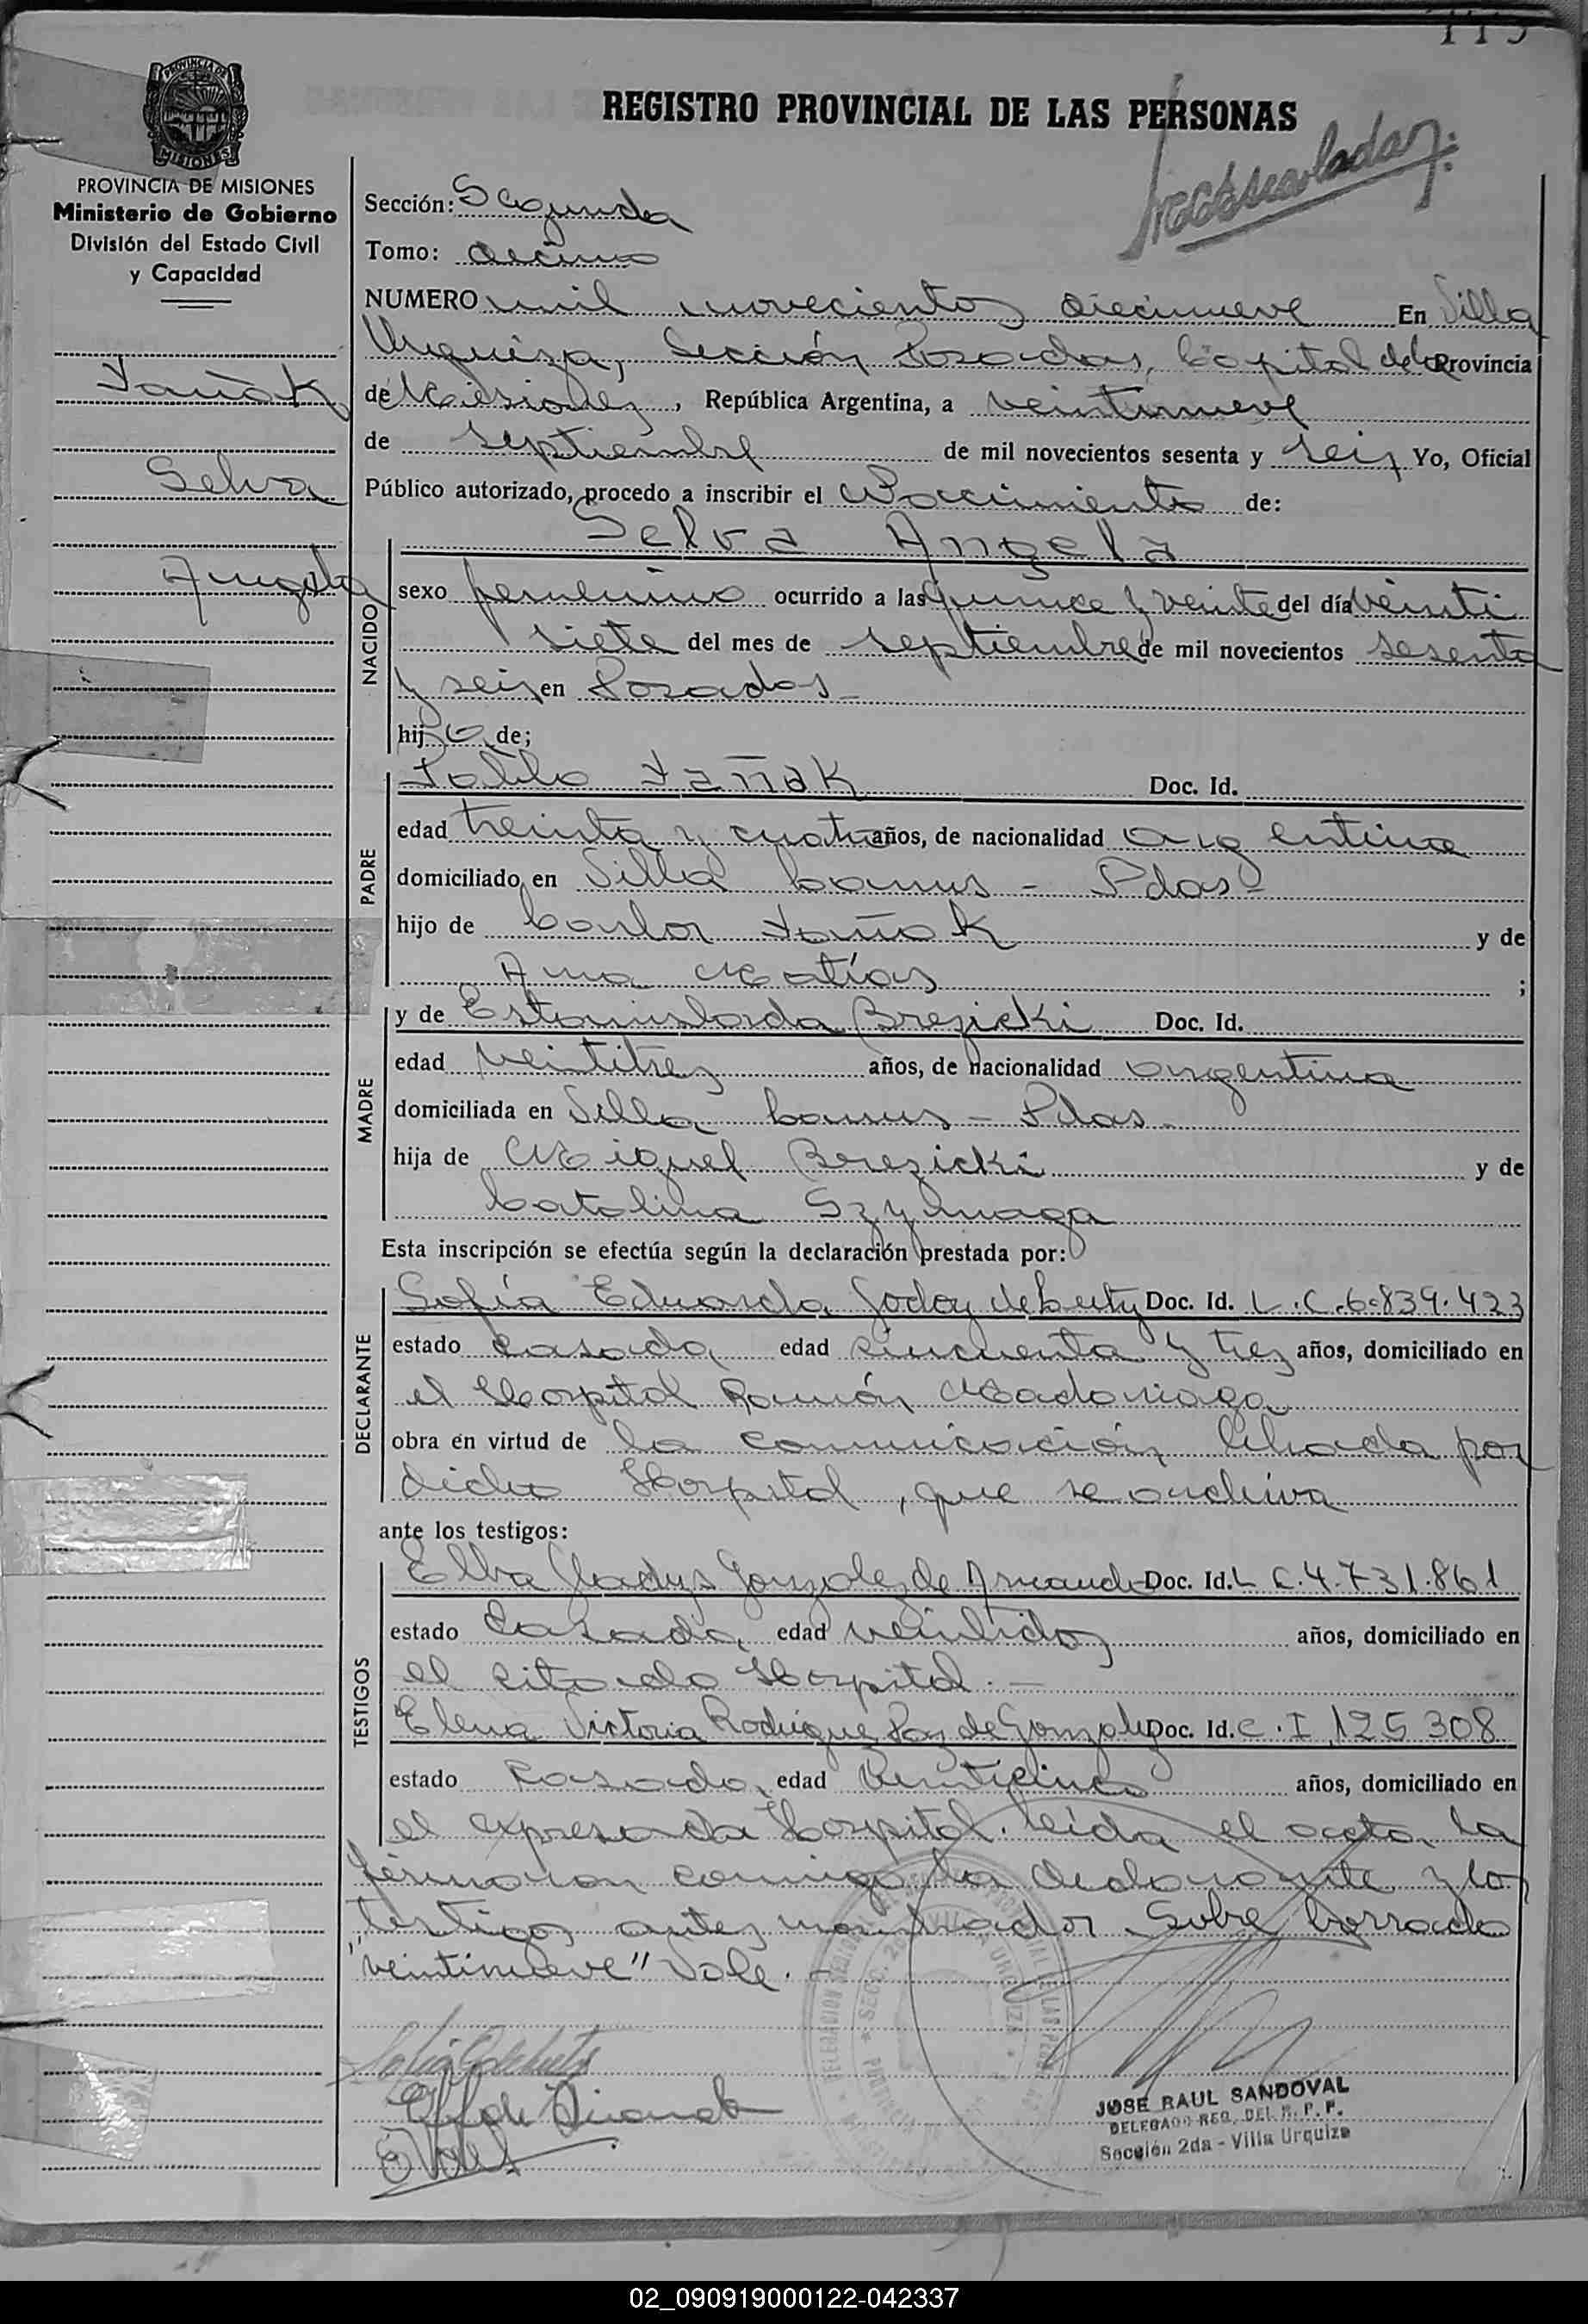 113
REGISTRO PROVINCIAL DE LAS PERSONAS
PROVINCIA DE MISIONES
PROVINCIA DE MISIONES
Ministerio de Gobierno
División del Estado Civil
y Capacidad
Tañak
Selva
Angela
Sección: Segunda
Tomo: decimo
NUMERO mil novecientos diecinueve En Villa
Urquiza, Sección Posadas, Capital de la Provincia
de Misiones, República Argentina, a veintinueve
de septiembre de mil novecientos sesenta y seis Yo, Oficial
Público autorizado, procedo a inscribir el Nacimiento de:
NACIDO
Selva Angela
sexo femenino ocurrido a las quince y veinte del día veinti
siete del mes de septiembre de mil novecientos sesenta
y seis en Posadas
hija de;
PADRE
Tañak Doc. Id.
edad treinta y cuatro años, de nacionalidad argentina
domiciliado en Villa Lanus - Pdas -
hijo de Carlos Tañak y de
Ana Matías ;
MADRE
y de Estanislada Brezicki Doc. Id.
edad veintitres años, de nacionalidad argentina
domiciliada en Villa Lanus - Pdas.
hija de Miguel Brezicki y de
Catalina Szymaga
Esta inscripción se efectúa según la declaración prestada por:
DECLARANTE
Sofía Eduarda Godoy de Doc. Id. L.C. 6.839.423
estado casada edad cincuenta y tres años, domiciliado en
el Hospital Ramón Madariaga
obra en virtud de la comunicación librada por
dicho Hospital, que se archiva
ante los testigos:
TESTIGOS
Elba Gladys Gonzalez de Doc. Id. L C. 4.731.861
estado Casada edad veintidos años, domiciliado en
el citado Hospital. -
Elena Victoria Rodriguez Paz de Gonzalez Doc. Id. C. I. 125 308
estado Casada edad Veinticinco años, domiciliado en
el expresado Hospital. Leída el acta, la
firmaron conmigo la declarante y los
testigos antes Sobre borrado
"veintinueve" Vale. -
JOSE RAUL SANDOVAL
DELEGADO REG. DEL R. P. P.
Sección 2da - Villa Urquiza
02_090919000122-042337